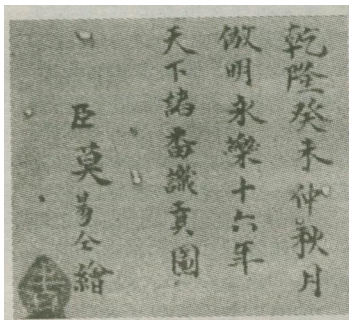 乾隆癸未仲秋月
倣明永樂十六年
天下諸番識貢圖
臣莫易仝繪